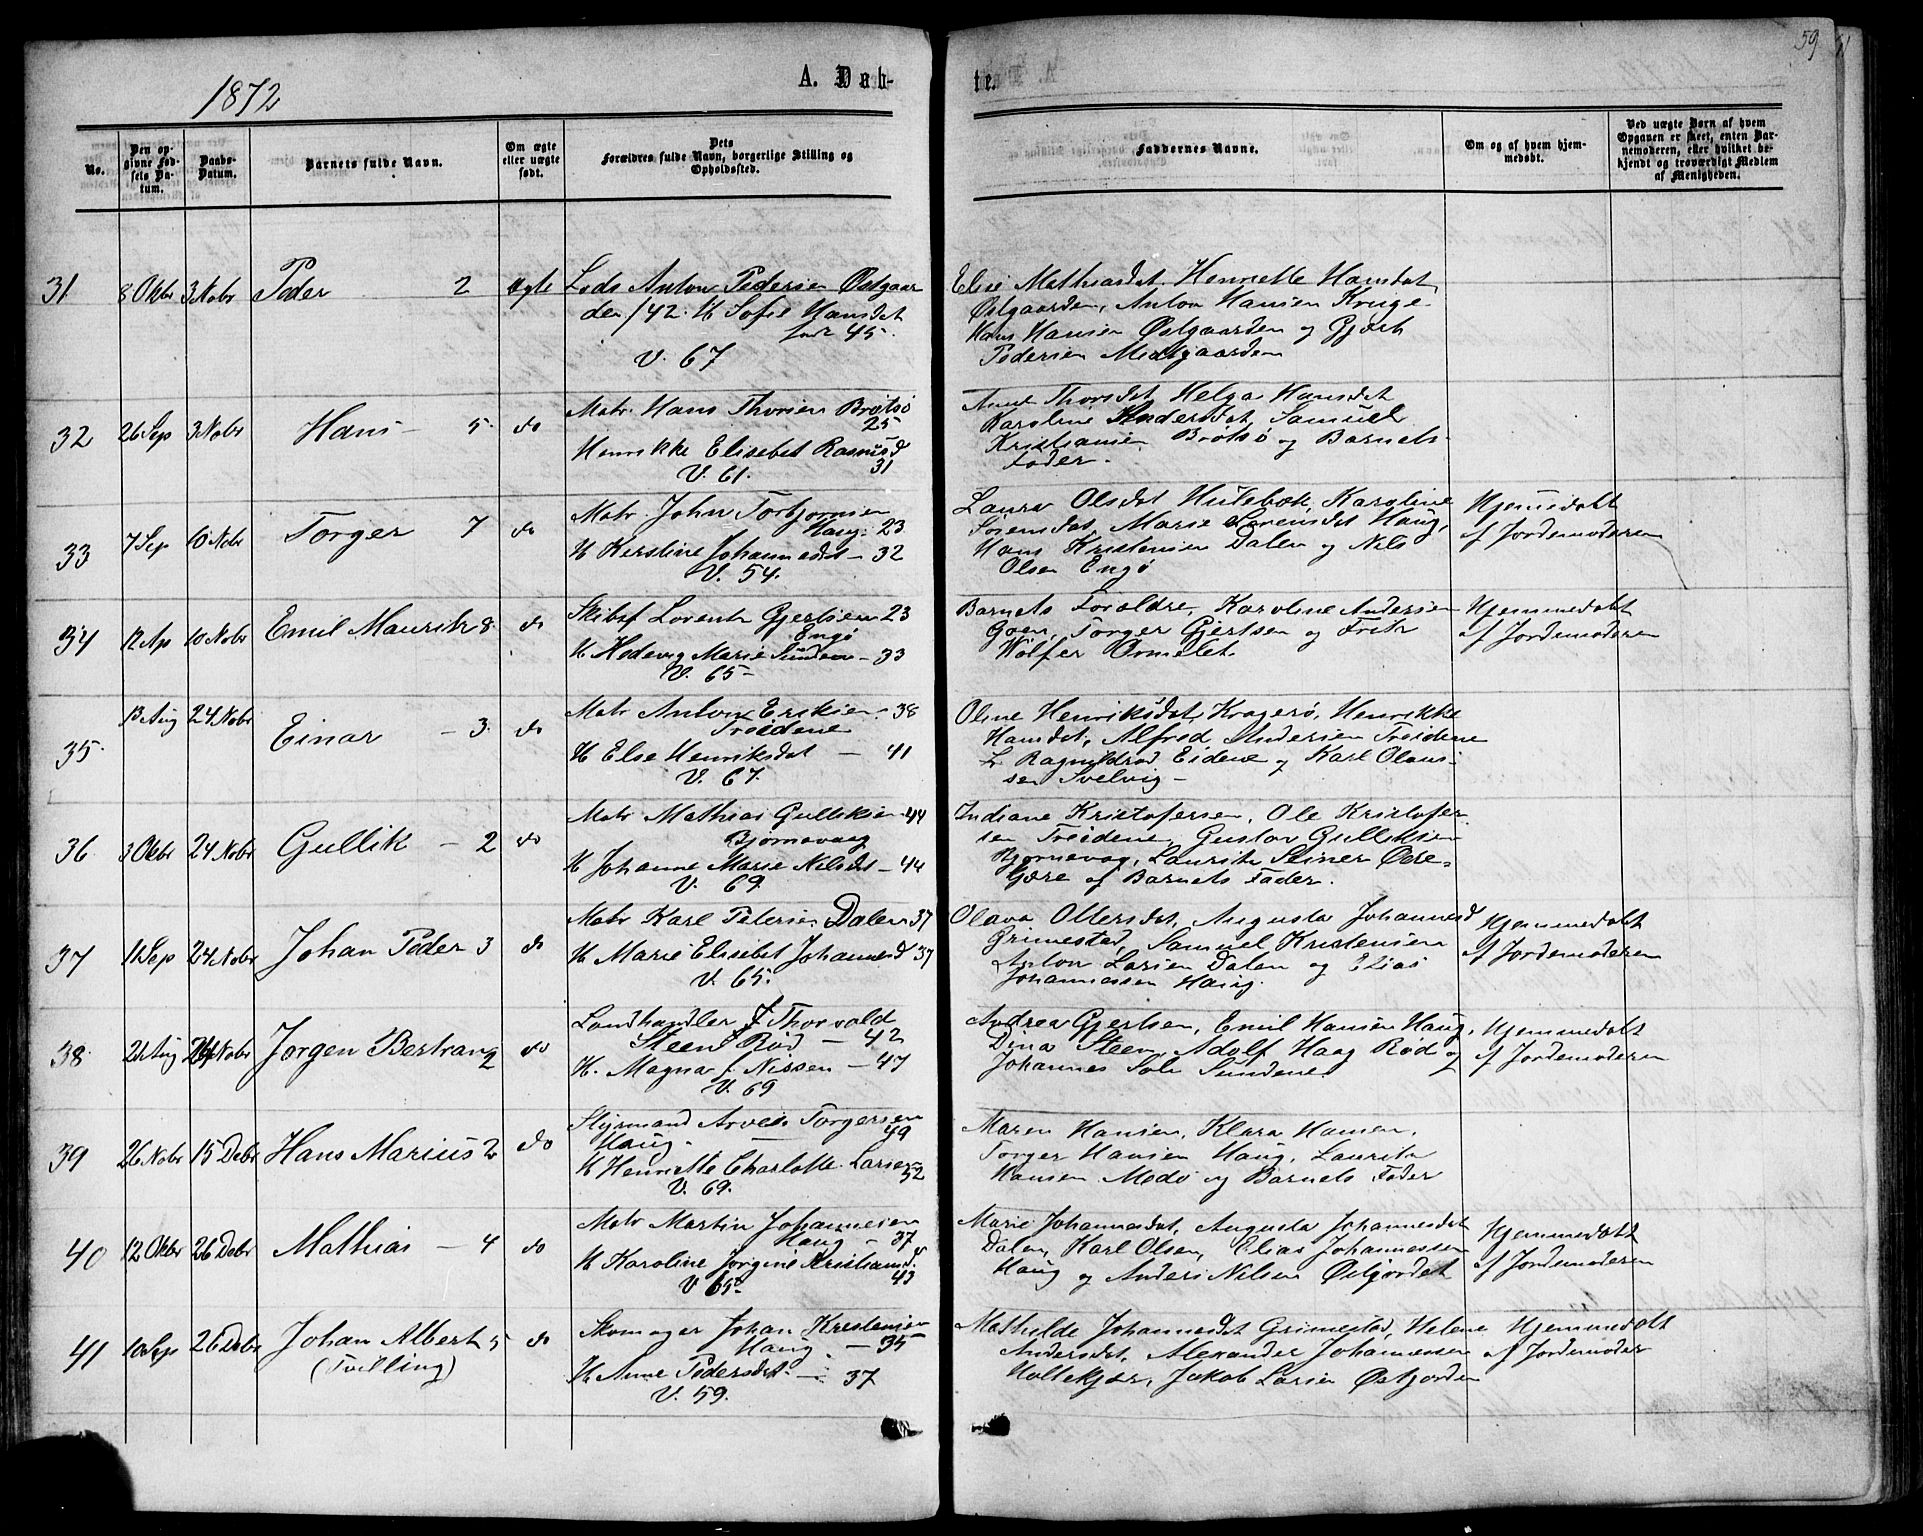 1872
A. Dåb-
te.
59
No.
Den op-
givne Fød-
sels Da-
tum.
Daabs-
Datum.
Barnets fulde Navn.
Om ægte
eller uægte
født.
Dets
Forældres fulde Navn, borgerlige Stilling og
Opholdssted.
Faddernes Navne.
Om og af hvem hjem-
medøbt.
Ved uægte Børn af hvem
Opgaven er skeet, enten Bar-
nemoderen, eller hvilket be-
kjendt og troværdigt Medlem
af Menigheden.
31 8 Oktbr 3 Nobr Peder 2 ægte Lods Anton Pedersen Østgaar
den /42. H Sofie Hansdat
født 45.
V. 67
Elise Mathiasdat, Henriette Hansdat
Østgaarden, Anton Hansen Kruge
Hans Hansen Østgaarden og Gjert
Pedersen Medgaarden
32 26 Sep 3 Nobr Hans - 5. do Matr. Hans Thorsen Brøtsø
25
Henrikke Elisebet Rasmusd
31
V. 61.
Anne Thorsdat Helga Hansdat
Karoline Andersdat, Samuel
Kristiansen Brøtsø og Barnets
Fader.
33 7 Sep 10 Nobr Torger 7 do Matr. John Torbjørnsen
Haug. 23
H Kirstine Johannesdat - 32
V. 54.
Laura Olsdat Hulebæk, Karoline
Sørensdat, Marie Sørensdat Haug,
Hans Kristensen Dalen og Nils
Olsen Engø
Hjemmedøbt
af Jordemoderen
34 12 Ap 10 Nobr Emil Mauritz 8. do Skibsf Lorentz Gjertsen 23
Engø
H Hedevig Marie Sundene - 33
V. 65-
Barnets Forældre, Karoline Andersen
Goen, Torger Gjertsen og Fritz
Wølfer Ormelet.
Hjemmedøbt
af Jordemoderen
35. 13 Aug 24 Nobr Einar - 3. do Matr Anton Eriksen. 38
Treidene
H Else Henriksdat - 41
V. 67.
Oline Henriksdat, Kragerø, Henrikke
Hansdat, Alfred Andersen Treidene
L Ragnildrød Eidene og Karl Olaus-
sen Svelvig -
36. 3 Oktbr 24 Nobr Gullik - 2 do Matr Mathias Gulliksen 44
Bjørnevaag
H Johanne Marie Nilsdat - 44
V. 69.
Indiane Kristofersen, Ole Kristofer
sen Treidene, Gustav Gulliksen
Bjørnevag, Lauritz Steiner Øvre-
Gjære af Barnets Fader.
37 11 Sep 24 Nobr Johan Peder 3 do Matr Karl Petersen Dalen 37
H Marie Elisebet Johannesd 37
V. 65.
Olava Ollersdat, Augusta Johannesd
Grimestad, Samuel Kristensen
Anton Larsen Dalen og Elias
Johannessen Haug.
Hjemmedøbt
af Jordemoderen
38. 21 Aug 24 Nobr Jørgen Bertran 2 do Landhandler J Thorvald
Steen Rød - 42
H. Magna f. Nissen - 47
V. 69
Andrea Gjertsen, Emil Hansen Haug,
Dina Steen, Adolf Haag Rød og
Johannes Sølv Sundene.
Hjemmedøbt
af Jordemoderen
39 26 Nobr 15 Debr Hans Marius 2 do Styrmand Arves Torgersen
Haug. - 49
H Henriette Charlotte Larsen
52
V. 69.
Maren Hansen, Klara Hansen,
Torger Hansen Haug, Lauritz
Hansen Medø og Barnets Fader
40 12 Oktbr 26 Debr Mathias - 4 do Matr Martin Johannesen
Haug - 37
H Karoline Jørgine Kristiansd.
43
V 65.
Marie Johannesdat, Augusta Johannesdat
Dalen, Karl Olsen, Elias Johannessen
Haug og Anders Nilsen Østjordet
Hjemmedøbt
af Jordemoderen
41 10 Sep 26 Debr Johan Albert 5 do Skomager Johan Kristensen
(Tvilling) Haug. - 35
H Anne Pedersdat - 37
V. 59.
Mathilde Johannesdat Grimestad, Helene
Andersdat, Alexander Johannessen
Holtekjær, Jakob Larsen Østjorden
Hjemmedøbt
af Jordemoder